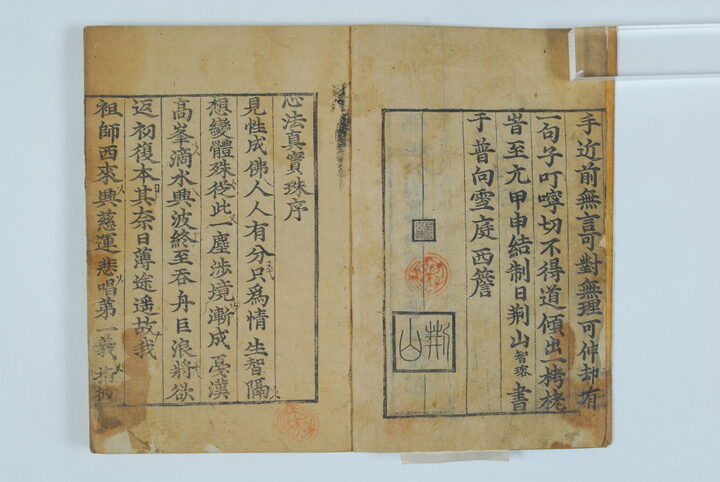 手近前無言可對無理可伸却有
一句子叮嚀切不得道傾出一栲栳
旹至元甲申結制日荊山智瑢書
于普向雪庭西簷
荊山
心法真實珠序
見性成佛人人有分只爲情生智隔
想變體殊從此一塵涉境漸成戞漢
高峯滴水興波終至吞舟巨浪將欲
返初復本其奈日薄途遥故我
祖師西來興慈運悲唱第一義